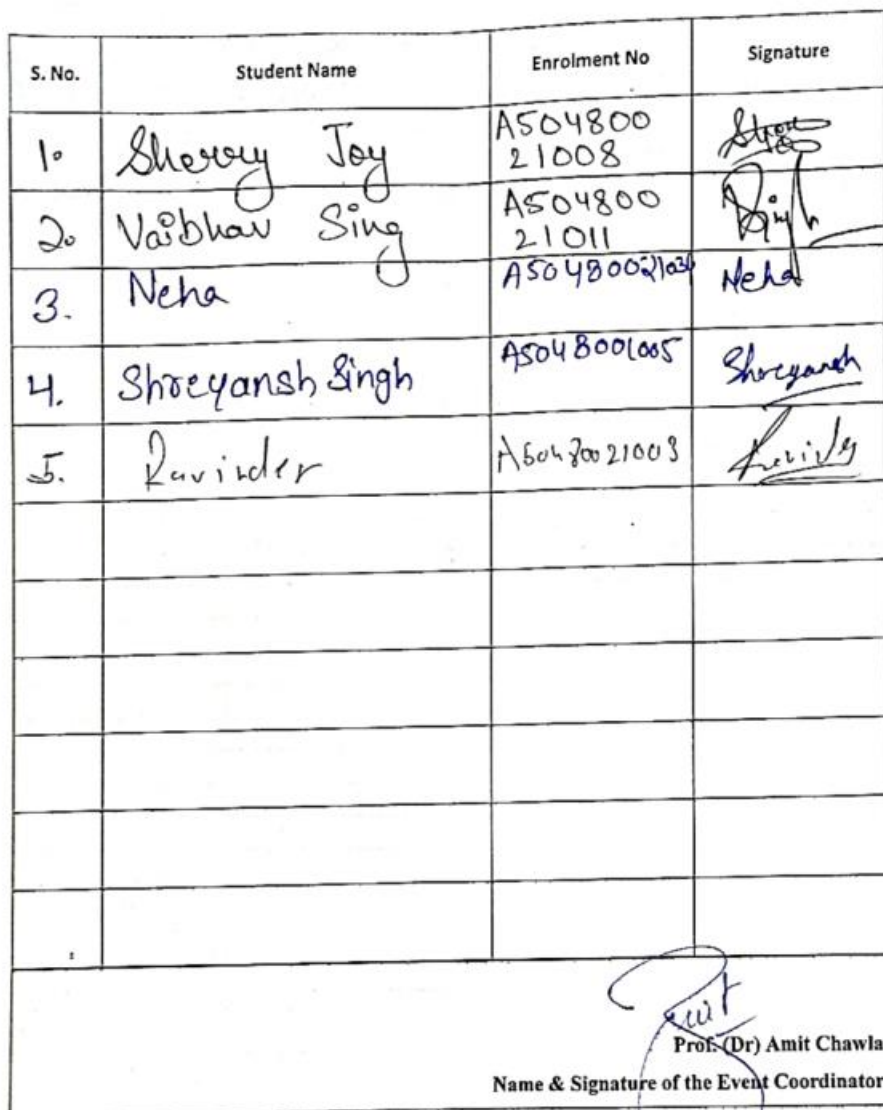 S. No. Student Name Enrolment No Signature
1. Sherry Joy A504800
21008
2. Vaibhav Sing A504800
21011
3. Neha Neha
4. Shreyansh Singh A5048001005 Shreyansh
5. Ravinder A50480021003
Prof. (Dr) Amit Chawla
Name & Signature of the Event Coordinator